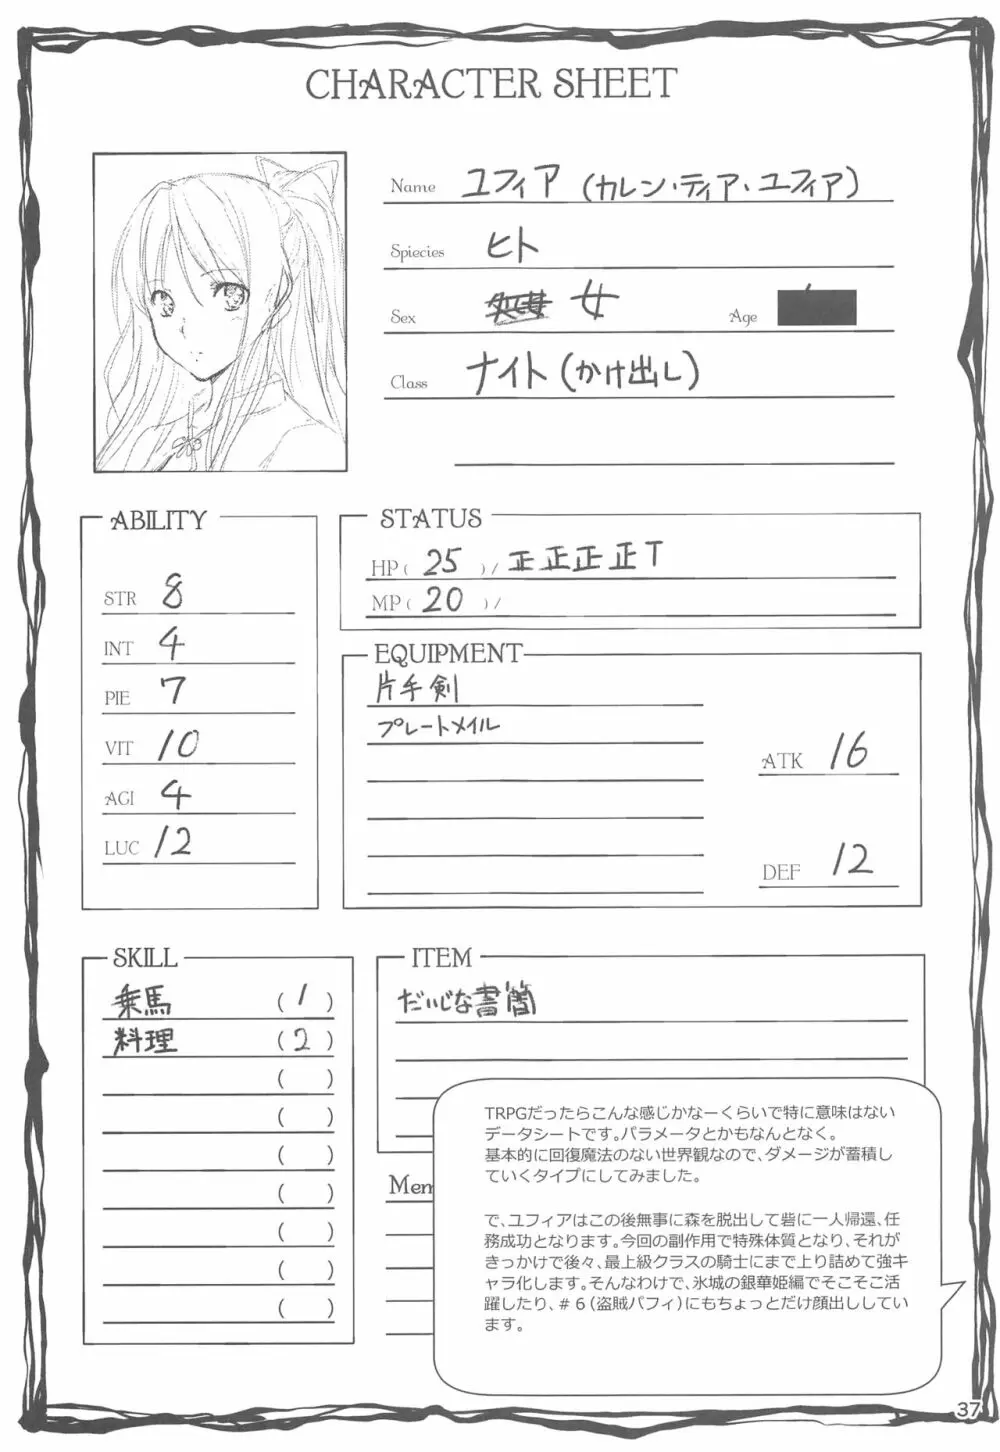 CHARACTER SHEET
Name ユフィア (カレン・ティア・ユフィア)
Spiecies ヒト
Sex 処女 女 Age
Class ナイト (かけ出し)
ABILITY
STR 8
INT 4
PIE 7
VIT 10
AGI 4
LUC 12
STATUS
HP( 25 )/ 正正正正T
MP( 20 )/
EQUIPMENT
片手剣
プレートメイル
ATK 16
DEF 12
SKILL
乗馬 ( 1 )
料理 ( 2 )
( )
( )
( )
( )
( )
( )
( )
ITEM
だいじな書簡
Mem
TRPGだったらこんな感じかなーくらいで特に意味はない
データシートです。パラメータとかもなんとなく。
基本的に回復魔法のない世界観なので、ダメージが蓄積し
ていくタイプにしてみました。
で、ユフィアはこの後無事に森を脱出して砦に一人帰還、任
務成功となります。今回の副作用で特殊体質となり、それが
きっかけで後々、最上級クラスの騎士にまで上り詰めて強キ
ャラ化します。そんなわけで、氷城の銀華姫編でそこそこ活
躍したり、#6(盗賊パフィ)にもちょっとだけ顔出ししてい
ます。
37